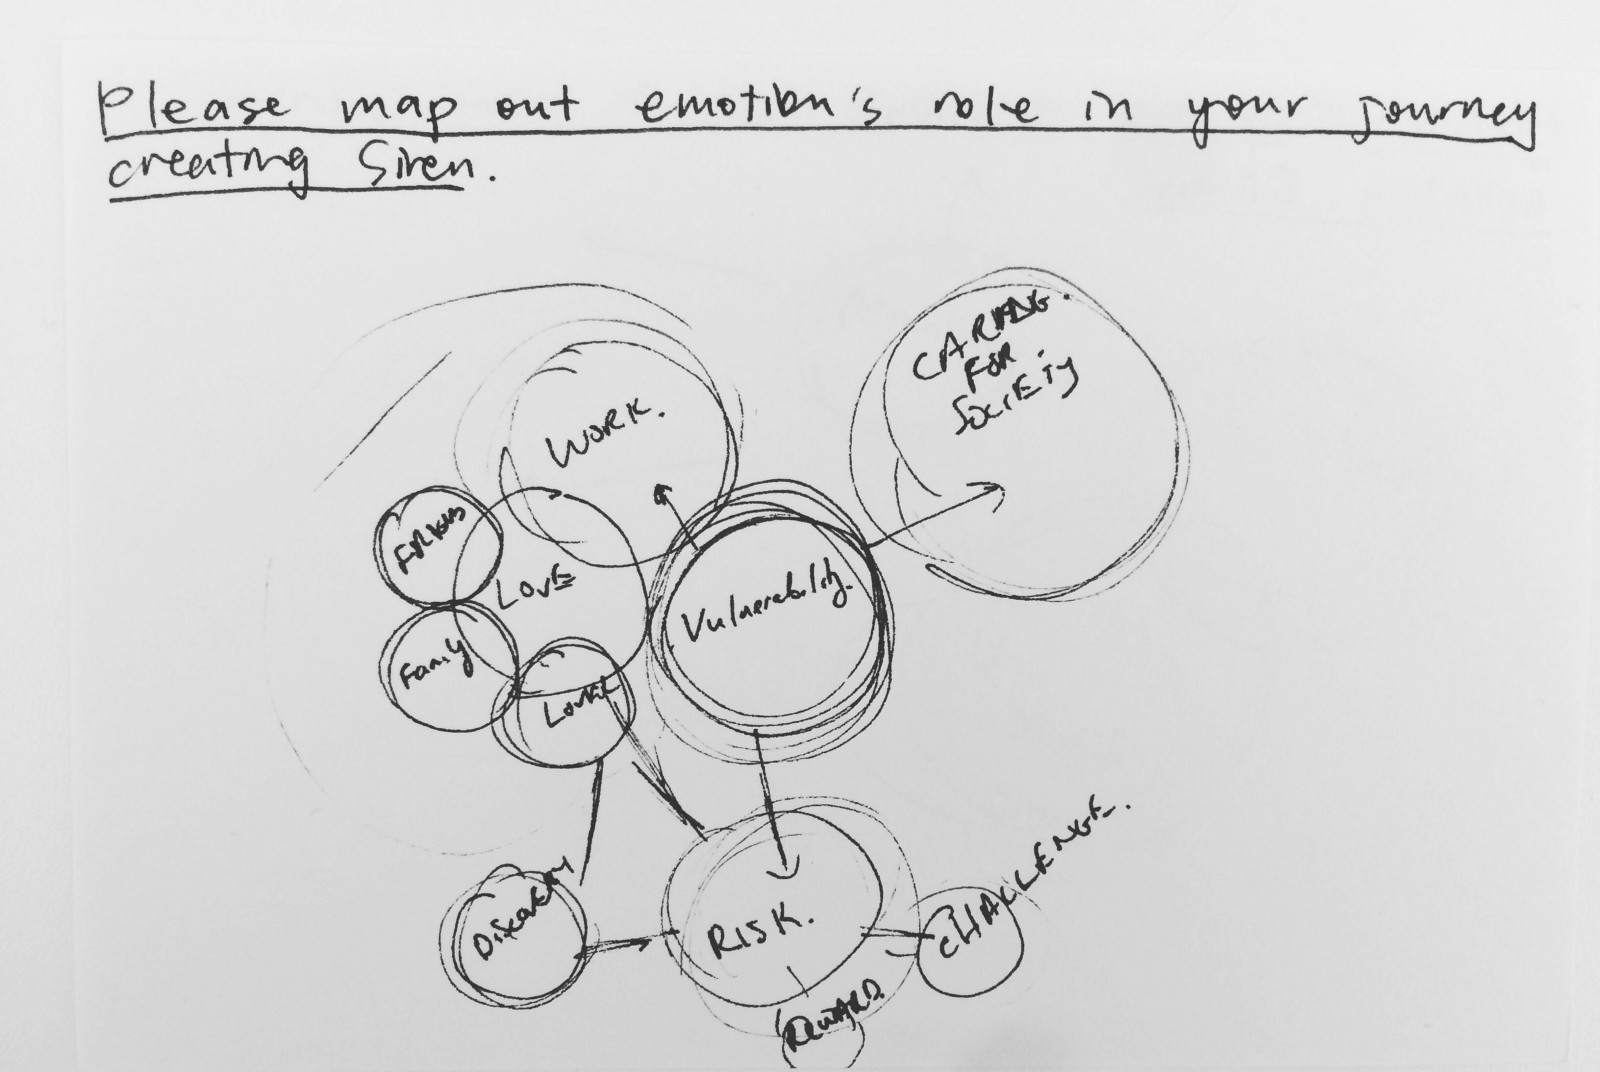 Please map out emotion's role in your journey
creating Siren.
CARING.
FOR
SOCIETY
WORK.
FRIENDS
LOVE
Vulnerability.
Family
CHALLENGE.
DISCOVERY
RISK.
REWARD.